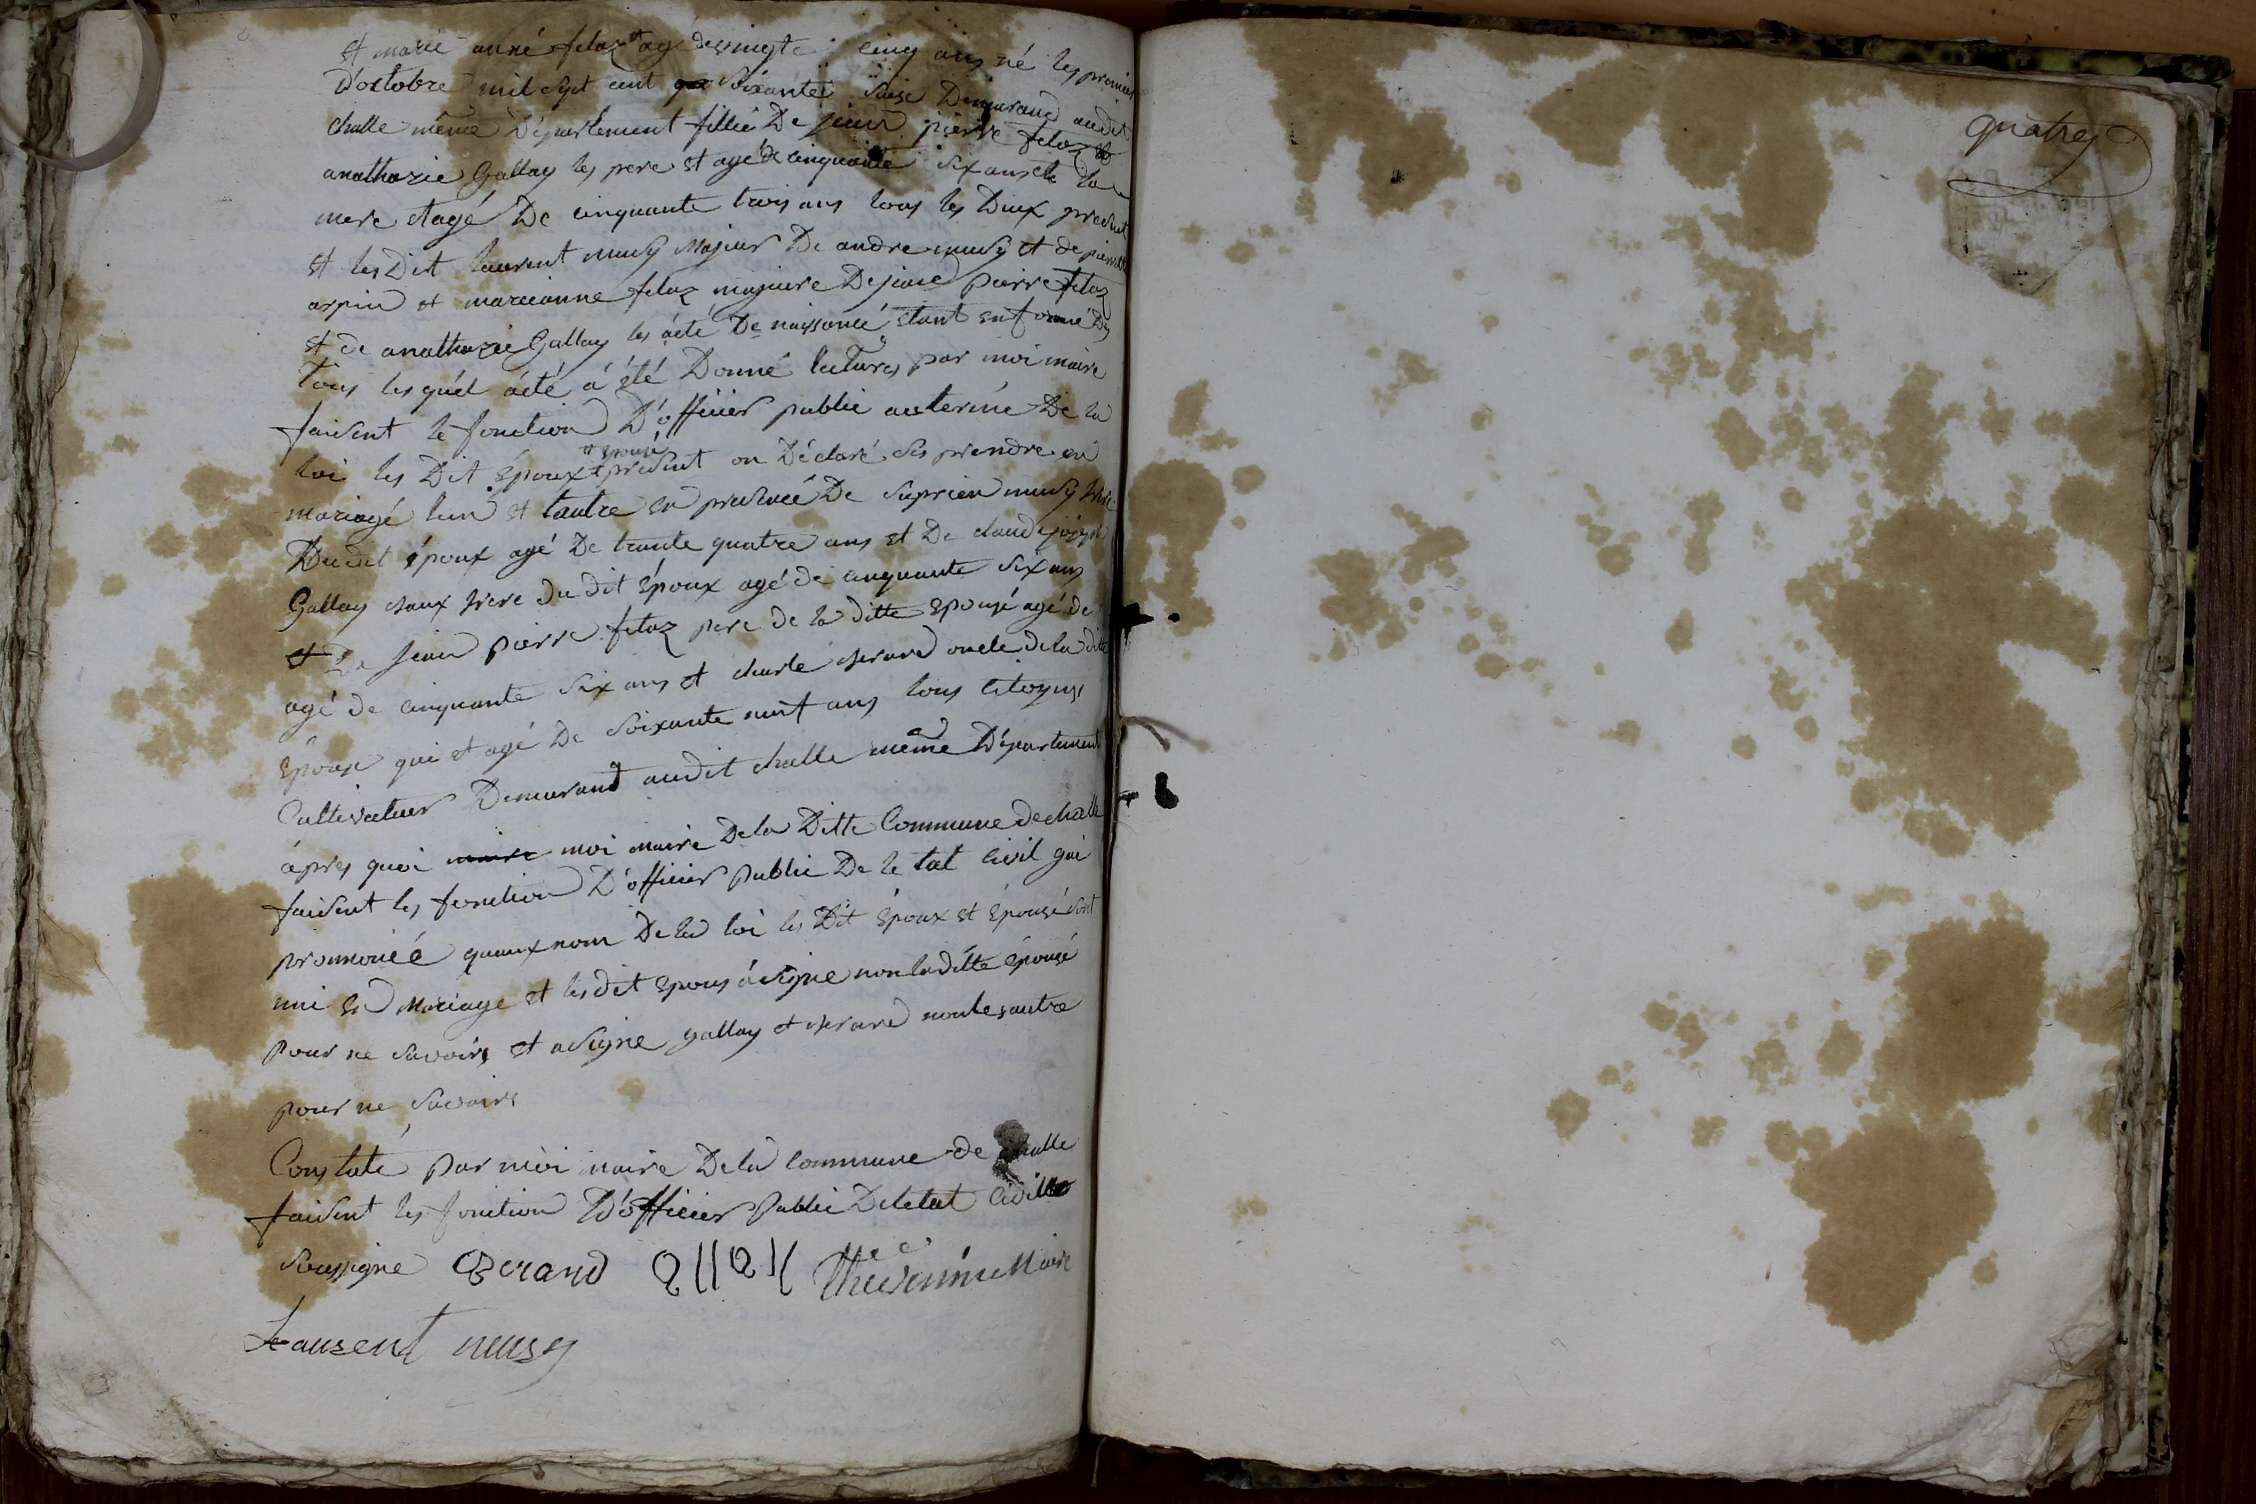 et marie anné felaz et agé de vingte cinq ans né les premier
D'octobre mil sept cent soixante saise Demurand audit
challe même Département fillié De jean pierre felaz et
anathazie Gallay les pere et agé de cinquante six ans et la
mere et agé De cinquante trois ans tous les Deux present
et les Dit laurent musy Majeur De andre musy et de pierrette
arpin et marieanne felaz majeure De jean pierre felaz
et de anathazie Gallay les acté De naissancé étant en formé Des
tous les quel acté à été Donné lectures par moi maire
faisent le fonction D'officier public au terme De la
et épousé
loi les Dit époux present on Déclaré ses prendre en
mariagé lun et lautre en presencé De suprien musy frere
Dudit époux agé De trante quatre ans et De claude joseph
Gallay chaux frere du dit époux agé de cinquante six ans
et De jean pierre felaz pere de la ditte epousé agé de
agé de cinquante six ans et charle cherand oncle de la ditte
épouse qui et agé De soixante neuf ans tous citoyens
Cultivateur Demurand audit challe même Département
àpres quoi maire moi maire De la Ditte Commune de challe
faisent les fonction D'officier Public De le tat Civil qui
pronnoncé quaux nom De la loi les Dit époux et épousé sont
uni en Mariage et les dit epous à signe non la ditte épousé
pour ne savoire et a signe gallay et cherand non les autre
pour ne savoire
Constaté par moi maire De la commune de challe
faisent les fonction D'officier Public De letat Civille
soussigne Gerand Maire
Laurent musy
quatre